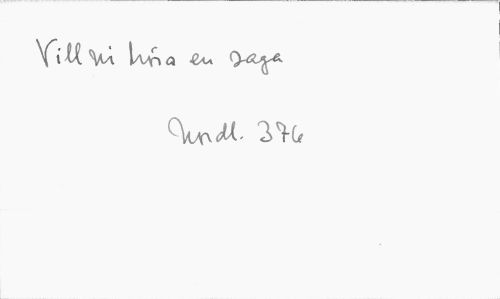 Vill ni höra en saga
Nordl. 376